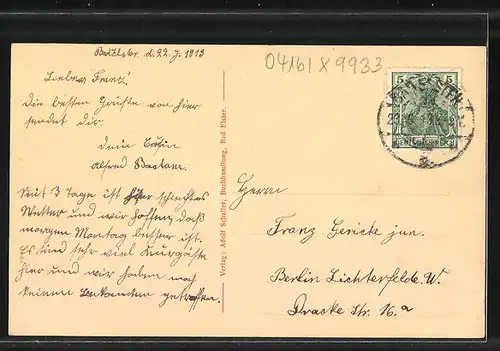 Bad Elster d. 22. 1913
04161 X 9933
Lieber Franz!
Die besten Grüße von hier
sendet dir
dein Cousin
Alfred
Seit 3 Tage ist hier schlechtes
Wetter und wir hoffen, daß
morgen Montag besser ist.
Es sind sehr viel Kurgäste
hier und wir haben noch
keinen Bekannten getroffen.
Verlag: Adolf Schuster, Buchhandlung, Bad Elster.
5 5
DEUTSCHES REICH
Herrn
Franz Gericke jun.
Berlin Lichterfelde. W.
Dracke Str. 16.a